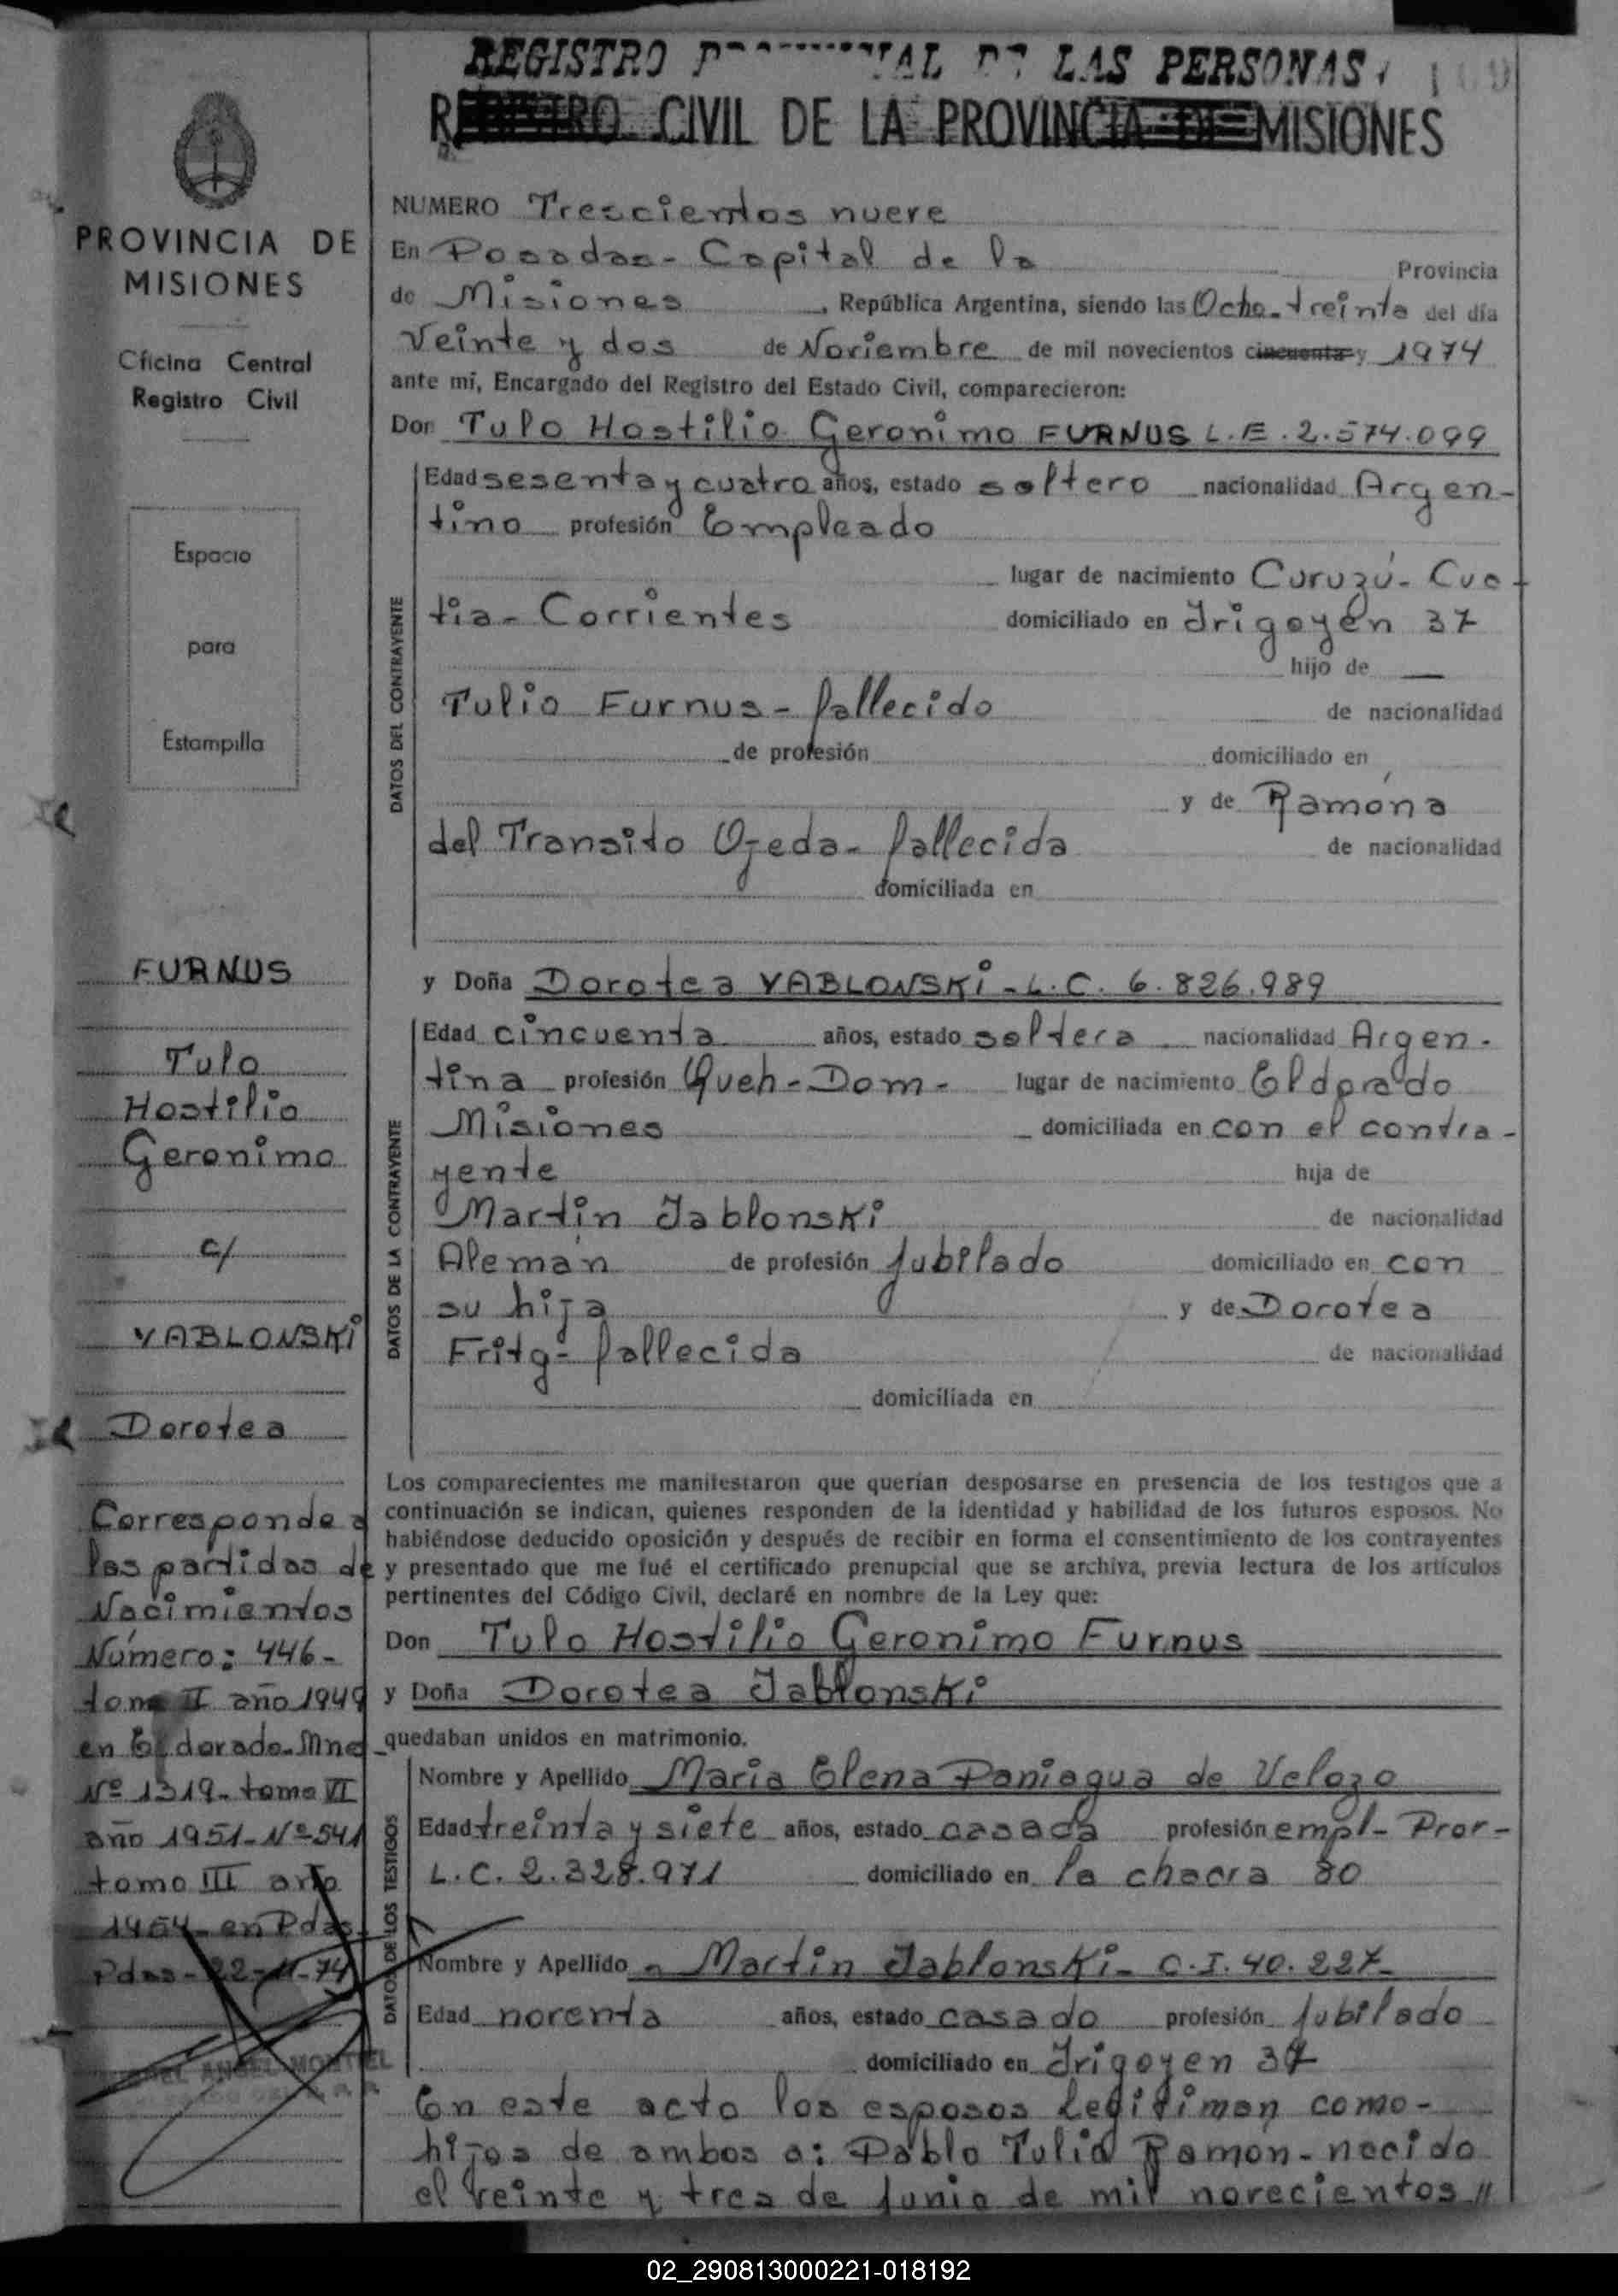 REGISTRO LAS PERSONAS
REGISTRO CIVIL DE LA PROVINCIA DE MISIONES
PROVINCIA DE
MISIONES
Oficina Central
Registro Civil
Espacio
para
Estampilla
FURNUS
Tulo
Hostilio
Geronimo
c/
YABLONSKi
Dorotea
Corresponde a
las partidas de
Nacimientos
Número: 446-
tomo II año 1949
en Eldorado-Mnes
Nº 1319- tomo VI
año 1951- Nº 541
tomo III año
en Pdas.
Pdas-22-11-74
ANGEL MONTIEL
NUMERO Trescientos nueve
En Posadas- Capital de la Provincia
de Misiones, República Argentina, siendo las Ocho-treinta del día
Veinte y dos de Noviembre de mil novecientos cincuenta y 1974
ante mí, Encargado del Registro del Estado Civil, comparecieron:
Don Tulo Hostilio Geronimo FURNUS L.E. 2.574.099
DATOS DEL CONTRAYENTE
Edad sesenta y cuatro años, estado soltero nacionalidad Argen-
tino profesión Empleado
lugar de nacimiento Curuzú- Cua-
tia- Corrientes domiciliado en Irigoyen 37
hijo de —
Tulio Furnus- fallecido de nacionalidad
de profesión domiciliado en
y de Ramóna
del Transito Ojeda- fallecida de nacionalidad
domiciliada en
y Doña Dorotea YABLONSKi- L.C. 6.826.989
DATOS DE LA CONTRAYENTE
Edad cincuenta años, estado soltera nacionalidad Argen-
tina profesión Queh-Dom- lugar de nacimiento Eldorado
Misiones domiciliada en con el contra-
yente hija de
Martin Jablonski de nacionalidad
Alemán de profesión jubilado domiciliado en con
su hija y de Dorotea
Fritg- fallecida de nacionalidad
domiciliada en
Los comparecientes me manifestaron que querían desposarse en presencia de los testigos que a
continuación se indican, quienes responden de la identidad y habilidad de los futuros esposos. No
habiéndose deducido oposición y después de recibir en forma el consentimiento de los contrayentes
y presentado que me fué el certificado prenupcial que se archiva, previa lectura de los artículos
pertinentes del Código Civil, declaré en nombre de la Ley que:
Don Tulo Hostilio Geronimo Furnus
y Doña Dorotea Jablonski
quedaban unidos en matrimonio.
DATOS DE LOS TESTIGOS
Nombre y Apellido Maria Elena Paniagua de Velozo
Edad treinta y siete años, estado casada profesión empl- Prov-
L.C. 2.328.971 domiciliado en la chacra 80
Nombre y Apellido - Martin Jablonski- C.I. 40.227-
Edad noventa años, estado casado profesión jubilado
domiciliado en Irigoyen 37
En este acto los esposos legitiman como-
hijos de ambos a: Pablo Tulio Ramón- nacido
el veinte y tres de junio de mil novecientos //
02_290813000221-018192